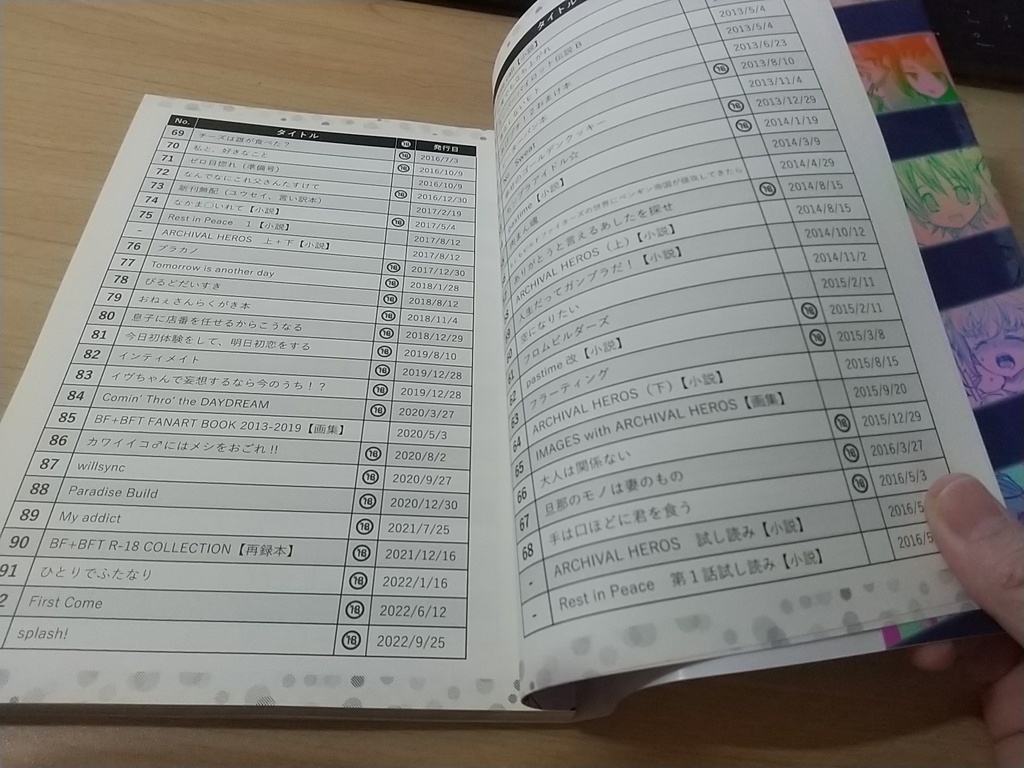 タイトル
2013/5/4
2013/5/4
2013/6/23
⑱ 2013/8/10
2013/11/4
Sweat ⑱ 2013/12/29
⑱ 2014/1/19
2014/3/9
2014/4/29
ありがとうと言えるあしたを探せ ⑱ 2014/8/15
ARCHIVAL HEROS（上）【小説】 2014/8/15
人生だってガンプラだ！【小説】 2014/10/12
空になりたい 2014/11/2
フロムビルダーズ 2015/2/11
pastime 改【小説】 ⑱ 2015/2/11
63 フラーティング ⑱ 2015/3/8
64 ARCHIVAL HEROS（下）【小説】 2015/8/15
65 IMAGES with ARCHIVAL HEROS【画集】 2015/9/20
66 大人は関係ない ⑱ 2015/12/29
67 旦那のモノは妻のもの ⑱ 2016/3/27
68 手は口ほどに君を食う ⑱ 2016/5/3
- ARCHIVAL HEROS 試し読み【小説】 2016/5
- Rest in Peace 第1話試し読み【小説】 2016/5
No. タイトル ⑱ 発行日
69 チーズは誰が食べた？ ⑱ 2016/7/3
70 私と、好きなこと ⑱ 2016/10/9
71 ゼロ目惚れ（準備号） 2016/10/9
72 なんでなにこれ父さんたすけて 2016/12/30
73 新刊無配（ユウセイ、言い訳本） 2017/2/19
74 なかま○いれて【小説】 ⑱ 2017/5/4
75 Rest in Peace 1【小説】 2017/8/12
- ARCHIVAL HEROS 上+下【小説】 2017/8/12
76 ブラカノ ⑱ 2017/12/30
77 Tomorrow is another day ⑱ 2018/1/28
78 びるどだいすき ⑱ 2018/8/12
79 おねぇさんらくがき本 ⑱ 2018/11/4
80 息子に店番を任せるからこうなる ⑱ 2018/12/29
81 今日初体験をして、明日初恋をする ⑱ 2019/8/10
82 インティメイト ⑱ 2019/12/28
83 イヴちゃんで妄想するなら今のうち！？ ⑱ 2019/12/28
84 Comin' Thro' the DAYDREAM ⑱ 2020/3/27
85 BF+BFT FANART BOOK 2013-2019【画集】 2020/5/3
86 カワイイコ♂にはメシをおごれ!! ⑱ 2020/8/2
87 willsync ⑱ 2020/9/27
88 Paradise Build ⑱ 2020/12/30
89 My addict ⑱ 2021/7/25
90 BF+BFT R-18 COLLECTION【再録本】 ⑱ 2021/12/16
91 ひとりでふたなり ⑱ 2022/1/16
2 First Come ⑱ 2022/6/12
splash! ⑱ 2022/9/25